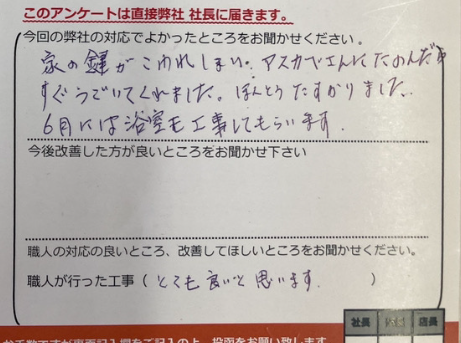 このアンケートは直接弊社 社長に届きます。
今回の弊社の対応でよかったところをお聞かせください。
家の鍵がこわれしまい、アスカでエんにたのんだら
すぐうごいてくれました。ほんとうたすかりました。
6月には浴室も工事してもらいます.
今後改善した方が良いところをお聞かせ下さい
職人の対応の良いところ、改善してほしいところをお聞かせください。
職人が行った工事( とても良いと思います. )
社長 店長
お手数ですが裏面記入欄をご記入の上、投函をお願い致します